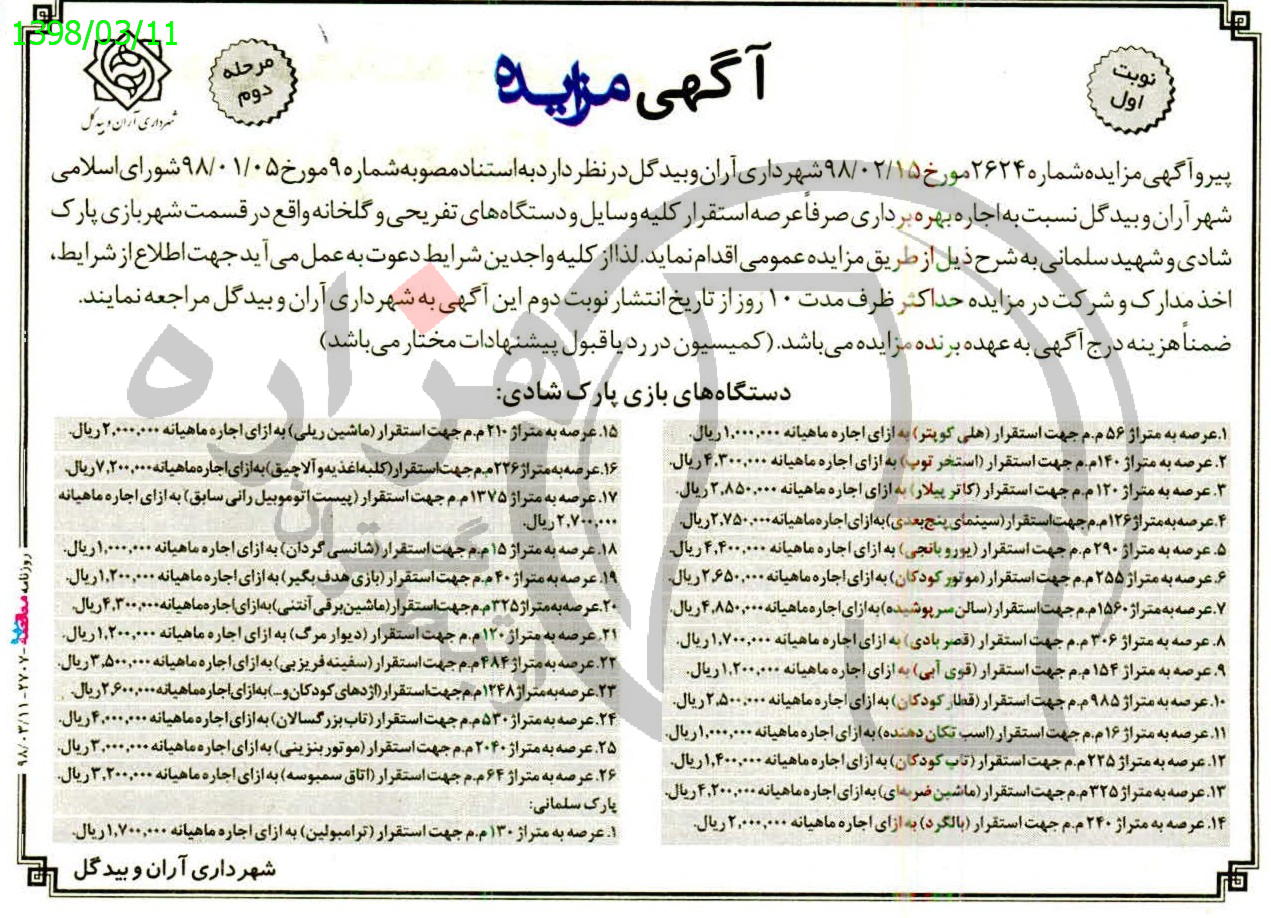 1398/03/11
نوبت
اول
آگهی مزایده
مرحله
دوم
شهرداری آران و بیدگل
پیرو آگهی مزایده شماره ۲۶۲۴ مورخ ۹۸/۰۲/۱۵ شهرداری آران و بیدگل در نظر دارد به استناد مصوبه شماره ۹ مورخ ۹۸/۰۱/۰۵ شورای اسلامی
شهر آران و بیدگل نسبت به اجاره بهره برداری صرفاً عرصه استقرار کلیه وسایل و دستگاه‌های تفریحی و گلخانه واقع در قسمت شهربازی پارک
شادی و شهید سلمانی به شرح ذیل از طریق مزایده عمومی اقدام نماید. لذا از کلیه واجدین شرایط دعوت به عمل می آید جهت اطلاع از شرایط،
اخذ مدارک و شرکت در مزایده حداکثر ظرف مدت ۱۰ روز از تاریخ انتشار نوبت دوم این آگهی به شهرداری آران و بیدگل مراجعه نمایند.
ضمناً هزینه درج آگهی به عهده برنده مزایده می‌باشد. (کمیسیون در رد یا قبول پیشنهادات مختار می‌باشد)
دستگاه‌های بازی پارک شادی:
۱. عرصه به متراژ ۵۶ م.م جهت استقرار (هلی کوپتر) به ازای اجاره ماهیانه ۱,۰۰۰,۰۰۰ ریال.
۲. عرصه به متراژ ۱۴۰م.م جهت استقرار (استخر توپ) به ازای اجاره ماهیانه ۴,۳۰۰,۰۰۰ ریال.
۳. عرصه به متراژ ۱۲۰م.م جهت استقرار (کاتر پیلار) به ازای اجاره ماهیانه ۲,۸۵۰,۰۰۰ ریال.
۴. عرصه به متراژ ۱۲۶م.م جهت استقرار (سینمای پنج بعدی) به ازای اجاره ماهیانه ۲,۷۵۰,۰۰۰ ریال.
۵. عرصه به متراژ ۲۹۰ م.م جهت استقرار (یورو بانجی) به ازای اجاره ماهیانه ۴,۴۰۰,۰۰۰ ریال.
۶. عرصه به متراژ ۲۵۵ م.م جهت استقرار (موتور کودکان) به ازای اجاره ماهیانه ۲,۶۵۰,۰۰۰ ریال.
۷. عرصه به متراژ ۱۵۶۰م.م جهت استقرار (سالن سرپوشیده) به ازای اجاره ماهیانه ۴,۸۵۰,۰۰۰ ریال.
۸. عرصه به متراژ ۳۰۶ م.م جهت استقرار (قصر بادی) به ازای اجاره ماهیانه ۱,۷۰۰,۰۰۰ ریال.
۹. عرصه به متراژ ۱۵۴ م.م جهت استقرار (قوی آبی) به ازای اجاره ماهیانه ۱,۲۰۰,۰۰۰ ریال.
۱۰. عرصه به متراژ ۹۸۵ م.م جهت استقرار (قطار کودکان) به ازای اجاره ماهیانه ۲,۵۰۰,۰۰۰ ریال.
۱۱. عرصه به متراژ ۱۶ م.م جهت استقرار (اسب تکان دهنده) به ازای اجاره ماهیانه ۱,۰۰۰,۰۰۰ ریال.
۱۲. عرصه به متراژ ۲۲۵ م.م جهت استقرار (تاب کودکان) به ازای اجاره ماهیانه ۱,۴۰۰,۰۰۰ ریال.
۱۳. عرصه به متراژ ۳۲۵ م.م جهت استقرار (ماشین ضربه‌ای) به ازای اجاره ماهیانه ۴,۲۰۰,۰۰۰ ریال.
۱۴. عرصه به متراژ ۲۴۰ م.م جهت استقرار (بالگرد) به ازای اجاره ماهیانه ۲,۰۰۰,۰۰۰ ریال.
۱۵. عرصه به متراژ ۲۱۰ م.م جهت استقرار (ماشین ریلی) به ازای اجاره ماهیانه ۲,۰۰۰,۰۰۰ ریال.
۱۶. عرصه به متراژ ۲۳۶م.م جهت استقرار (کلبه اغذیه و آلاچیق) به ازای اجاره ماهیانه ۷,۲۰۰,۰۰۰ ریال.
۱۷. عرصه به متراژ ۱۳۷۵ م.م جهت استقرار (پیست اتوموبیل رانی سابق) به ازای اجاره ماهیانه
۲,۷۰۰,۰۰۰ ریال.
۱۸. عرصه به متراژ ۱۵م.م جهت استقرار (شانسی گردان) به ازای اجاره ماهیانه ۱,۰۰۰,۰۰۰ ریال.
۱۹. عرصه به متراژ ۴۰ م.م جهت استقرار (بازی هدف بگیر) به ازای اجاره ماهیانه ۱,۲۰۰,۰۰۰ ریال.
۲۰. عرصه به متراژ ۳۲۵ م.م جهت استقرار (ماشین برقی آنتنی) به ازای اجاره ماهیانه ۴,۳۰۰,۰۰۰ ریال.
۲۱. عرصه به متراژ ۱۲۰م.م جهت استقرار (دیوار مرگ) به ازای اجاره ماهیانه ۱,۲۰۰,۰۰۰ ریال.
۲۲. عرصه به متراژ ۴۸۴ م.م جهت استقرار (سفینه فریزبی) به ازای اجاره ماهیانه ۳,۵۰۰,۰۰۰ ریال.
۲۳. عرصه به متراژ ۱۲۴۸م.م جهت استقرار (اژدهای کودکان و...) به ازای اجاره ماهیانه ۲,۶۰۰,۰۰۰ ریال.
۲۴. عرصه به متراژ ۵۳۰ م.م جهت استقرار (تاب بزرگسالان) به ازای اجاره ماهیانه ۴,۰۰۰,۰۰۰ ریال.
۲۵. عرصه به متراژ ۲۰۴۰ م.م جهت استقرار (موتور بنزینی) به ازای اجاره ماهیانه ۳,۰۰۰,۰۰۰ ریال.
۲۶. عرصه به متراژ ۶۴ م.م جهت استقرار (اتاق سمبوسه) به ازای اجاره ماهیانه ۳,۲۰۰,۰۰۰ ریال.
پارک سلمانی:
۱. عرصه به متراژ ۱۳۰ م.م جهت استقرار (ترامبولین) به ازای اجاره ماهیانه ۱,۷۰۰,۰۰۰ ریال.
شهرداری آران و بیدگل
روزنامه
۲۷۰۷ - ۹۸/۰۳/۱۱
هزاره